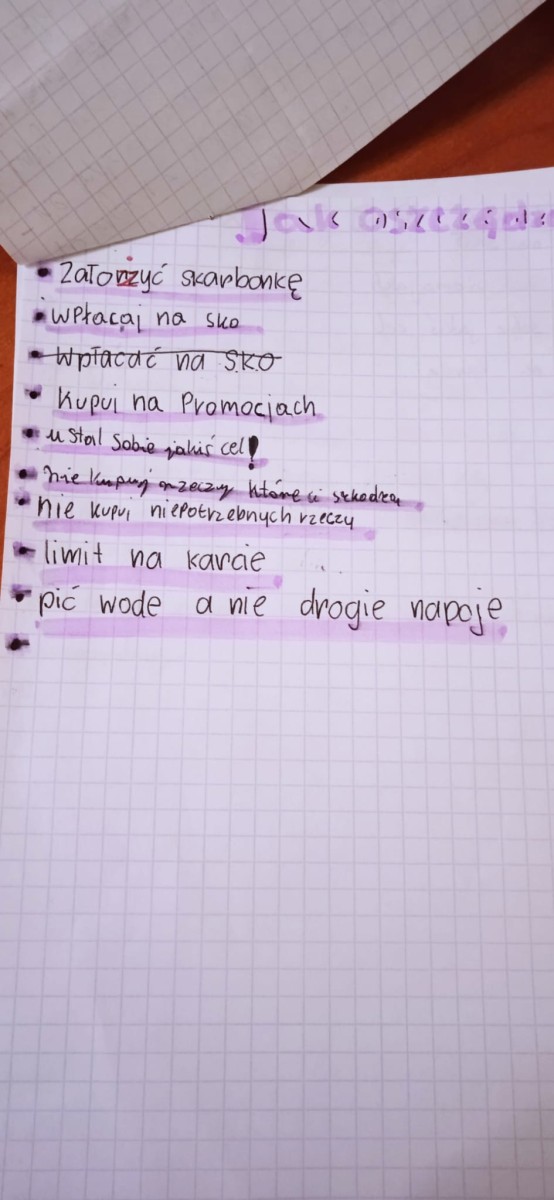 Jak oszczędz
• Załorzyć skarbonkę
• wpłacaj na sko
• Wpłacać na SKO
• Kupuj na Promocjach
• ustal sobie jakiś cel!
• nie kupuj rzeczy które ci szkodzą
• nie kupuj niepotrzebnych rzeczy
• limit na karcie
• pić wode a nie drogie napoje
•